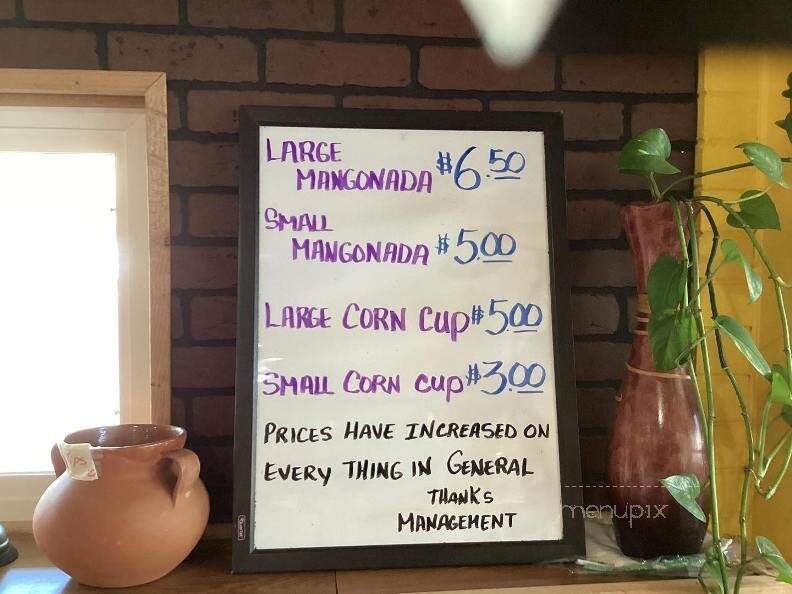 LARGE
MANGONADA $6.50
SMALL
MANGONADA $5.00
LARGE CORN CUP $5.00
SMALL CORN CUP $3.00
PRICES HAVE INCREASED ON
EVERY THING IN GENERAL
THANKS
MANAGEMENT
menupix